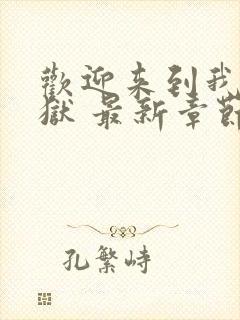 歡迎来到我
獄 最新章節
孔繁峙